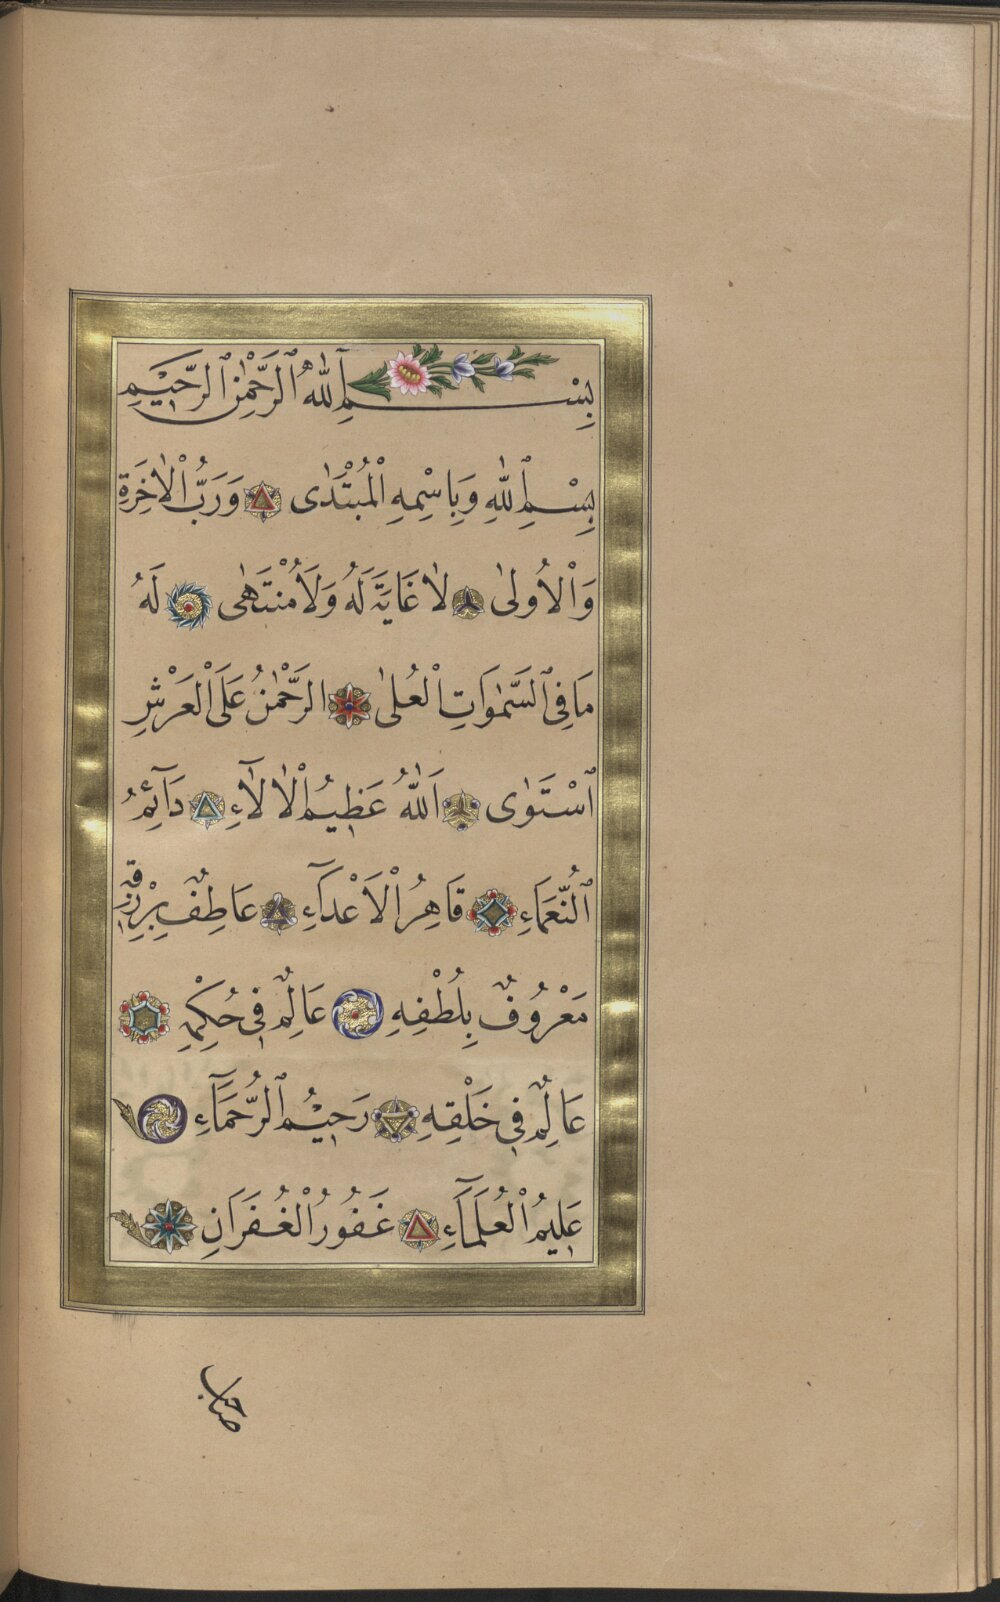 بِسْمِ اللّٰهِ الرَّحْمٰنِ الرَّحِيْمِ
بِسْمِ اللّٰهِ وَبِاسْمِهِ الْمُبْتَدٰى وَرَبُّ الْاٰخِرَةِ
وَالْاُولٰى لَا غَايَةَ لَهُ وَلَا مُنْتَهٰى لَهُ
مَا فِى السَّمٰوَاتِ الْعُلٰى الرَّحْمٰنُ عَلَى الْعَرْشِ
اسْتَوٰى اَللّٰهُ عَظِيمُ الْاٰلَآءِ دَآئِمُ
النُّعَمَاءِ قَاهِرُ الْاَعْدَآءِ عَاطِفٌ بِرِزْقِهِ
مَعْرُوفٌ بِلُطْفِهِ عَالِمٌ فِى حُكْمِهِ
عَالِمٌ فِى خَلْقِهِ رَحِيْمُ الرُّحَمَآءِ
عَلِيمُ الْعُلَمَآءِ غَفُورُ الْغُفَرَانِ
صاحب